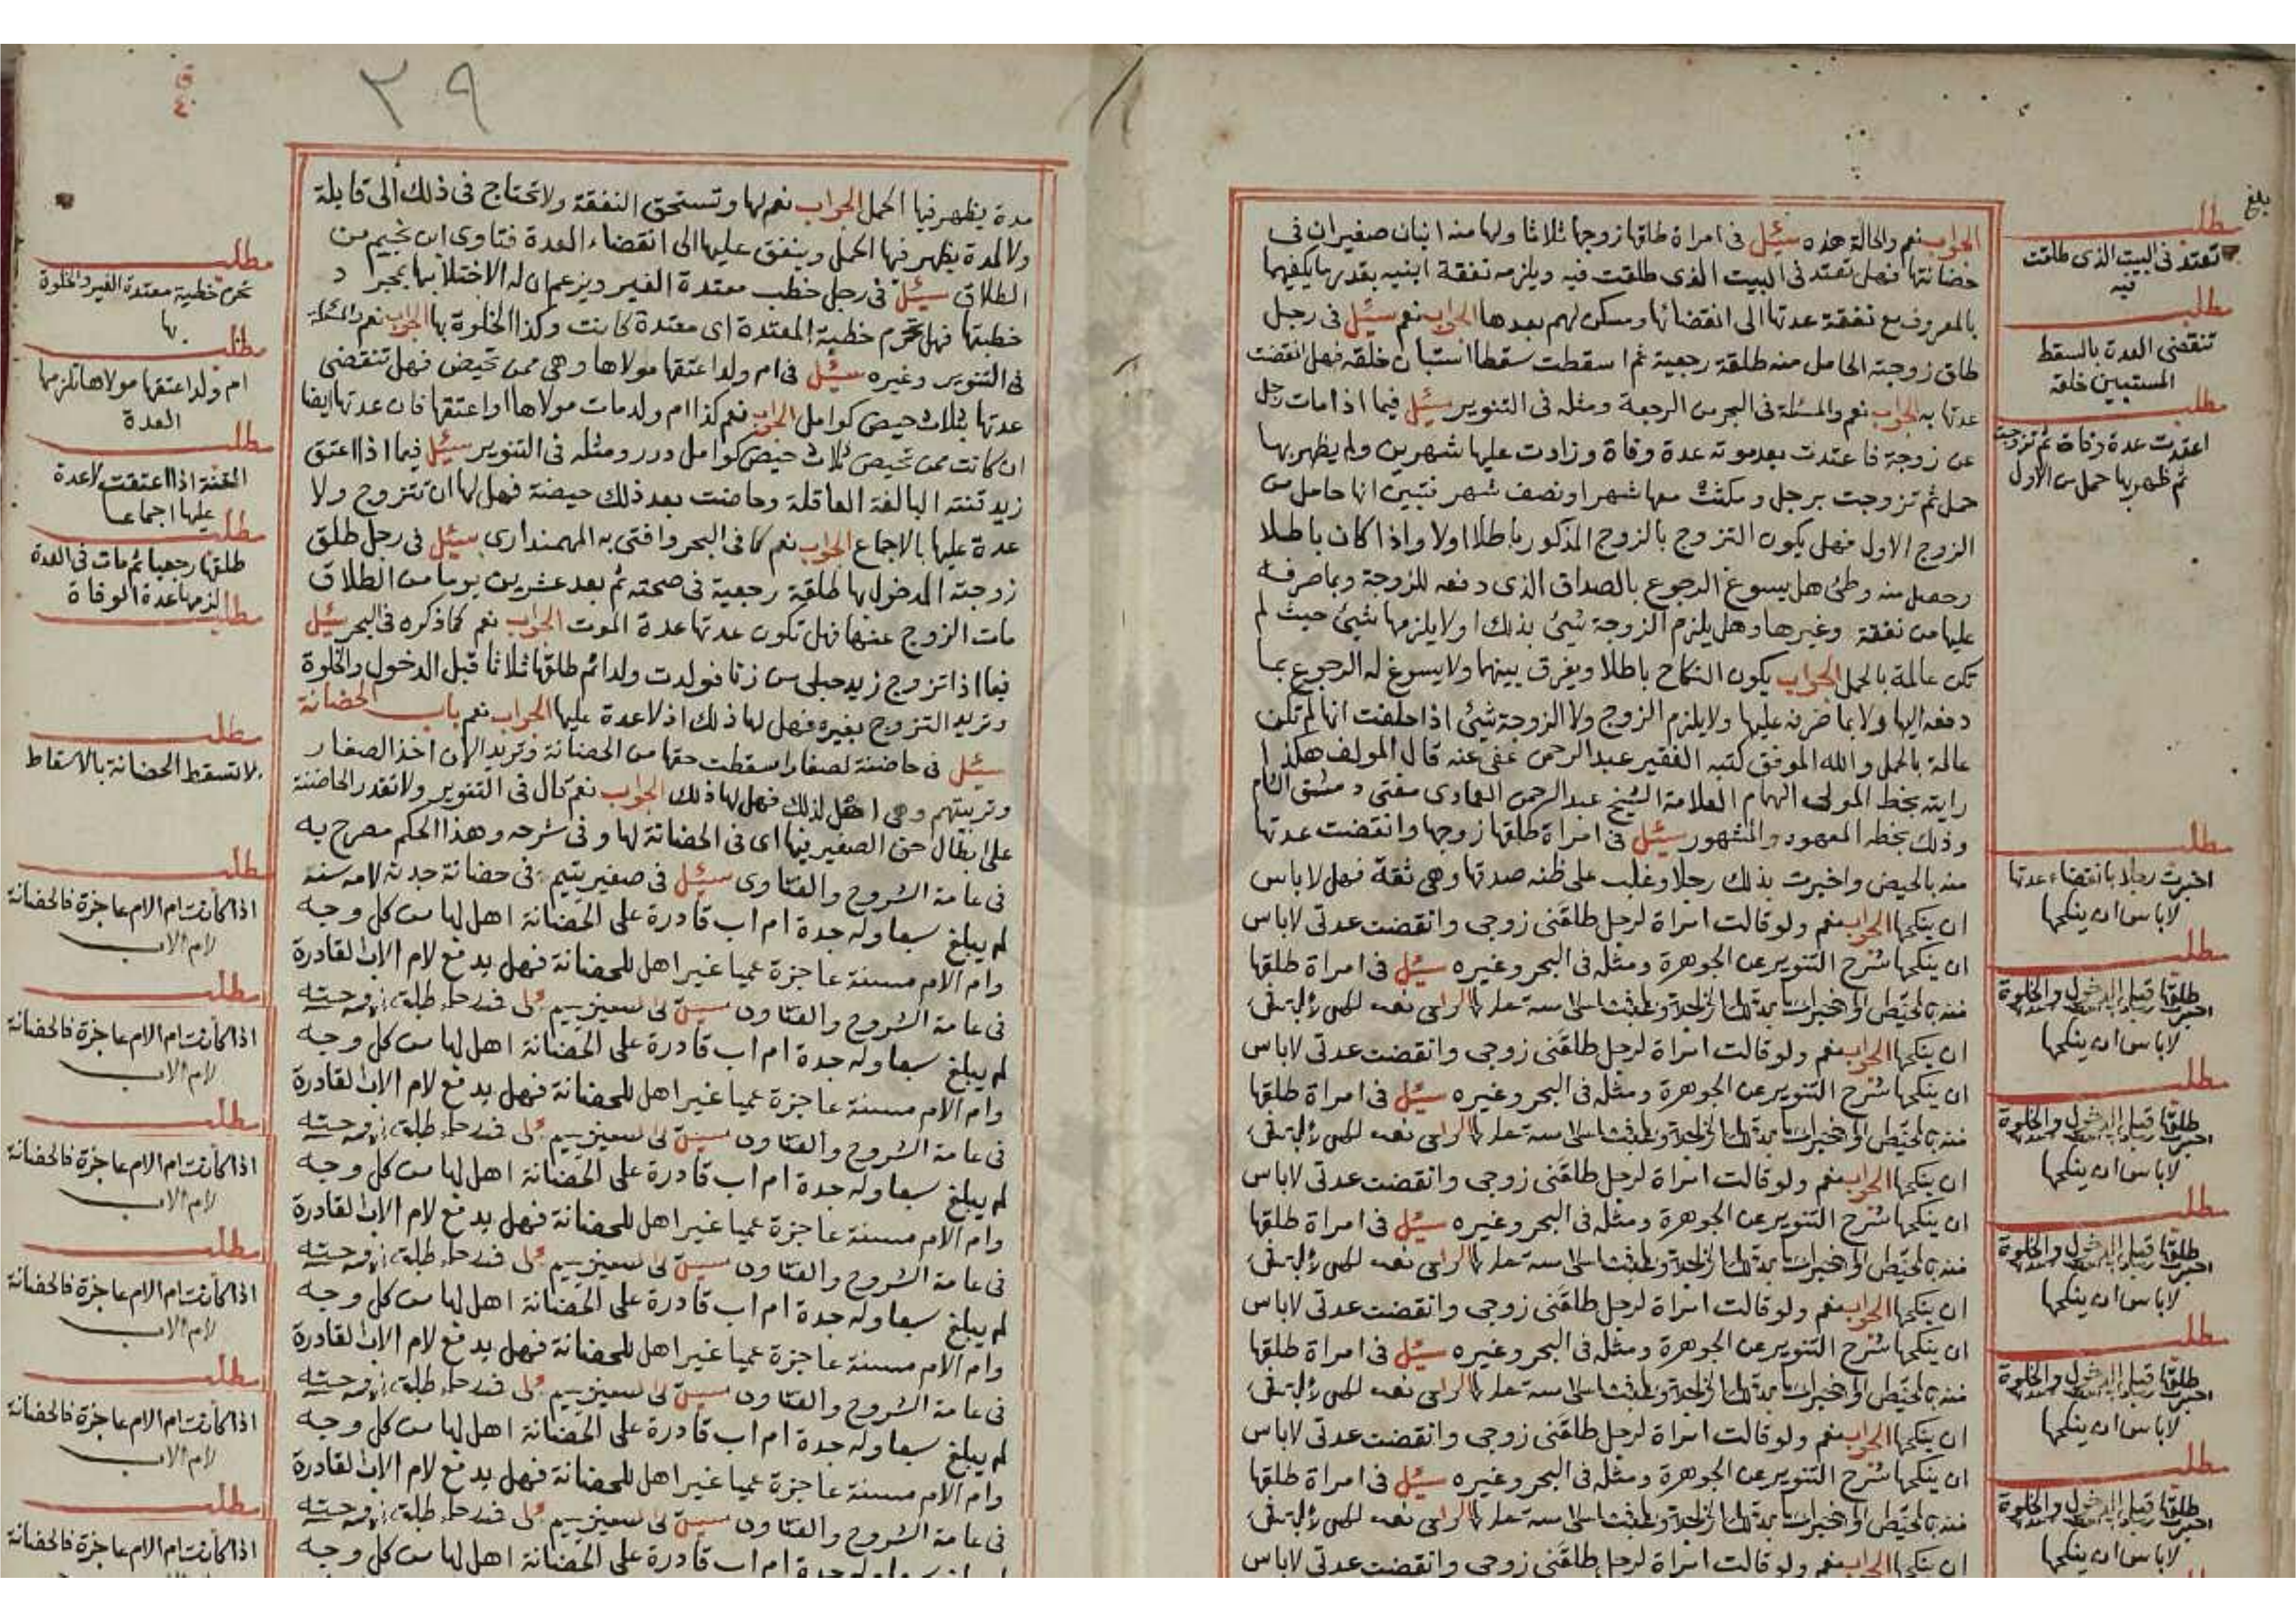 بلغ
الجواب نعم والحالة هذه سئل في امراة طلقها زوجها ثلاثا ولها منه ابنان صغيران في
حضانتها فهل تعتد في البيت الذى طلقت فيه ويلزمه نفقة ابنيه بقدر ما يكفيهما
بالمعروف مع نفقة عدتها الى انقضائها ومسكن لهم بعدها الجواب نعم سئل في رجل
طلق زوجته الحامل منه طلقة رجعية ثم اسقطت سقطا استبان خلقه فهل انقضت
عدتها به الجواب نعم والمسئلة في البحر من الرجعة ومثله في التنوير سئل فيما اذا مات رجل
عن زوجة فاعتدت بعد موته عدة وفاة وزادت عليها شهرين ولم يظهر بها
حمل ثم تزوجت برجل ومكثت معها شهرا ونصف شهر فتبين انها حامل من
الزوج الاول فهل يكون التزوج بالزوج المذكور باطلا اولا واذا كان باطلا
وحصل منه وطئ هل يسوغ الرجوع بالصداق الذى دفعه للزوجة وبما صرفه
عليها من نفقة وغيرها وهل يلزم الزوجة شيئ بذلك او لا يلزمها شيئ حيث لم
تكن عالمة بالحمل الجواب يكون النكاح باطلا ويفرق بينهما ولا يسوغ له الرجوع بما
دفعه اليها ولا بما صرفه عليها ولا يلزم الزوج ولا الزوجة شيئ اذا حلفت انها لم تكن
عالمة بالحمل والله الموفق كتبه الفقير عبد الرحمن عفى عنه قال المولف هكذا
رايته بخط المولى الهمام العلامة الشيخ عبد الرحمن العمادى مفتى دمشق الشام
وذلك بخطه المعهود والمشهور سئل في امراة طلقها زوجها وانقضت عدتها
منه بالحيض واخبرت بذلك رجلا وغلب على ظنه صدقها وهى ثقة فهل لاباس
ان ينكحها الجواب نعم ولو قالت امراة لرجل طلقنى زوجى وانقضت عدتى لاباس
ان ينكحها شرح التنوير عن الجوهرة ومثله في البحر وغيره سئل في امراة طلقها
ان ينكحها الجواب نعم ولو قالت امراة لرجل طلقنى زوجى وانقضت عدتى لاباس
ان ينكحها شرح التنوير عن الجوهرة ومثله في البحر وغيره سئل في امراة طلقها
ان ينكحها الجواب نعم ولو قالت امراة لرجل طلقنى زوجى وانقضت عدتى لاباس
ان ينكحها شرح التنوير عن الجوهرة ومثله في البحر وغيره سئل في امراة طلقها
ان ينكحها الجواب نعم ولو قالت امراة لرجل طلقنى زوجى وانقضت عدتى لاباس
ان ينكحها شرح التنوير عن الجوهرة ومثله في البحر وغيره سئل في امراة طلقها
ان ينكحها الجواب نعم ولو قالت امراة لرجل طلقنى زوجى وانقضت عدتى لاباس
ان ينكحها شرح التنوير عن الجوهرة ومثله في البحر وغيره سئل في امراة طلقها
ان ينكحها الجواب نعم ولو قالت امراة لرجل طلقنى زوجى وانقضت عدتى لاباس
مطلب
تعتد في البيت الذى طلقت
فيه
مطلب
تنقضى العدة بالسقط
المستبين خلقه
مطلب
اعتدت عدة وفاة ثم تزوجت
ثم ظهر بها حمل من الاول
مطلب
اخبرت رجلا بانقضاء عدتها
لاباس ان ينكحها
مطلب
طلقها قبل الدخول والخلوة
لاباس ان ينكحها
مطلب
طلقها قبل الدخول والخلوة
لاباس ان ينكحها
مطلب
طلقها قبل الدخول والخلوة
لاباس ان ينكحها
مطلب
طلقها قبل الدخول والخلوة
لاباس ان ينكحها
مطلب
طلقها قبل الدخول والخلوة
لاباس ان ينكحها
٣٩
ق
٤٠
مدة يظهر فيها الحمل الجواب نعم لها وتستحق النفقة ولا تحتاج في ذلك الى قابلة
ولا لمدة يظهر فيها الحمل وينفق عليها الى انقضاء العدة فتاوى ابن نجيم من
الطلاق سئل في رجل خطب معتدة الغير ويزعم ان له الاختلا بها بمجرد
خطبتها فهل تحرم خطبة المعتدة اى معتدة كانت وكذا الخلوة بها الجواب نعم والمسئلة
في التنوير وغيره سئل في ام ولد اعتقها مولاها وهى ممن تحيض فهل تنقضى
عدتها بثلاث حيض كوامل الجواب نعم كذا ام ولد مات مولاها او اعتقها فان عدتها ايضا
ان كانت ممن تحيض ثلاث حيض كوامل درر ومثله في التنوير سئل فيما اذا اعتق
زيد قنته البالغة العاقلة وحاضت بعد ذلك حيضة فهل لها ان تتزوج ولا
عدة عليها بالاجماع الجواب نعم كما في البحر وافتى به المهمندارى سئل في رجل طلق
زوجته المدخول بها طلقة رجعية في صحته ثم بعد عشرين يوما من الطلاق
مات الزوج عنها فهل تكون عدتها عدة الموت الجواب نعم كما ذكره في البحر سئل
فيما اذا تزوج زيد حبلى من زنا فولدت ولدا ثم طلقها ثلاثا قبل الدخول والخلوة
وتريد التزوج بغيره فهل لها ذلك اذ لا عدة عليها الجواب نعم باب الحضانة
سئل في حاضنة لصغار اسقطت حقها من الحضانة وتريد الان اخذ الصغار
وتربيتهم وهى اهل لذلك فهل لها ذلك الجواب نعم قال في التنوير ولا تقدر الحاضنة
على ابطال حق الصغير فيها اى في الحضانة لها وفي شرحه وهذا الحكم مصرح به
في عامة الشروح والفتاوى سئل في صغير يتيم في حضانة جدته لامه سنه
لم يبلغ سبعا وله جدة ام اب قادرة على الحضانة اهل لها من كل وجه
وام الام مسنة عاجزة عميا غير اهل للحضانة فهل يدفع لام الاب القادرة
في عامة الشروح
لم يبلغ سبعا وله جدة ام اب قادرة على الحضانة اهل لها من كل وجه
وام الام مسنة عاجزة عميا غير اهل للحضانة فهل يدفع لام الاب القادرة
في عامة الشروح
لم يبلغ سبعا وله جدة ام اب قادرة على الحضانة اهل لها من كل وجه
وام الام مسنة عاجزة عميا غير اهل للحضانة فهل يدفع لام الاب القادرة
في عامة الشروح
لم يبلغ سبعا وله جدة ام اب قادرة على الحضانة اهل لها من كل وجه
وام الام مسنة عاجزة عميا غير اهل للحضانة فهل يدفع لام الاب القادرة
في عامة الشروح
لم يبلغ سبعا وله جدة ام اب قادرة على الحضانة اهل لها من كل وجه
وام الام مسنة عاجزة عميا غير اهل للحضانة فهل يدفع لام الاب القادرة
في عامة الشروح
قادرة على الحضانة اهل لها من كل وجه
مطلب
تحرم خطبة معتدة الغير والخلوة
بها
مطلب
ام ولد اعتقها مولاها تلزمها
العدة
مطلب
القنة اذا اعتقت لا عدة
عليها اجماعا
مطلب
طلقها رجعيا ثم مات في العدة
لزمها عدة الوفاة
مطلب
مطلب
لا تسقط الحضانة بالاسقاط
مطلب
اذا كانت ام الام عاجزة فالحضانة
لام الاب
مطلب
اذا كانت ام الام عاجزة فالحضانة
لام الاب
مطلب
اذا كانت ام الام عاجزة فالحضانة
لام الاب
مطلب
اذا كانت ام الام عاجزة فالحضانة
لام الاب
مطلب
اذا كانت ام الام عاجزة فالحضانة
لام الاب
مطلب
اذا كانت ام الام عاجزة فالحضانة